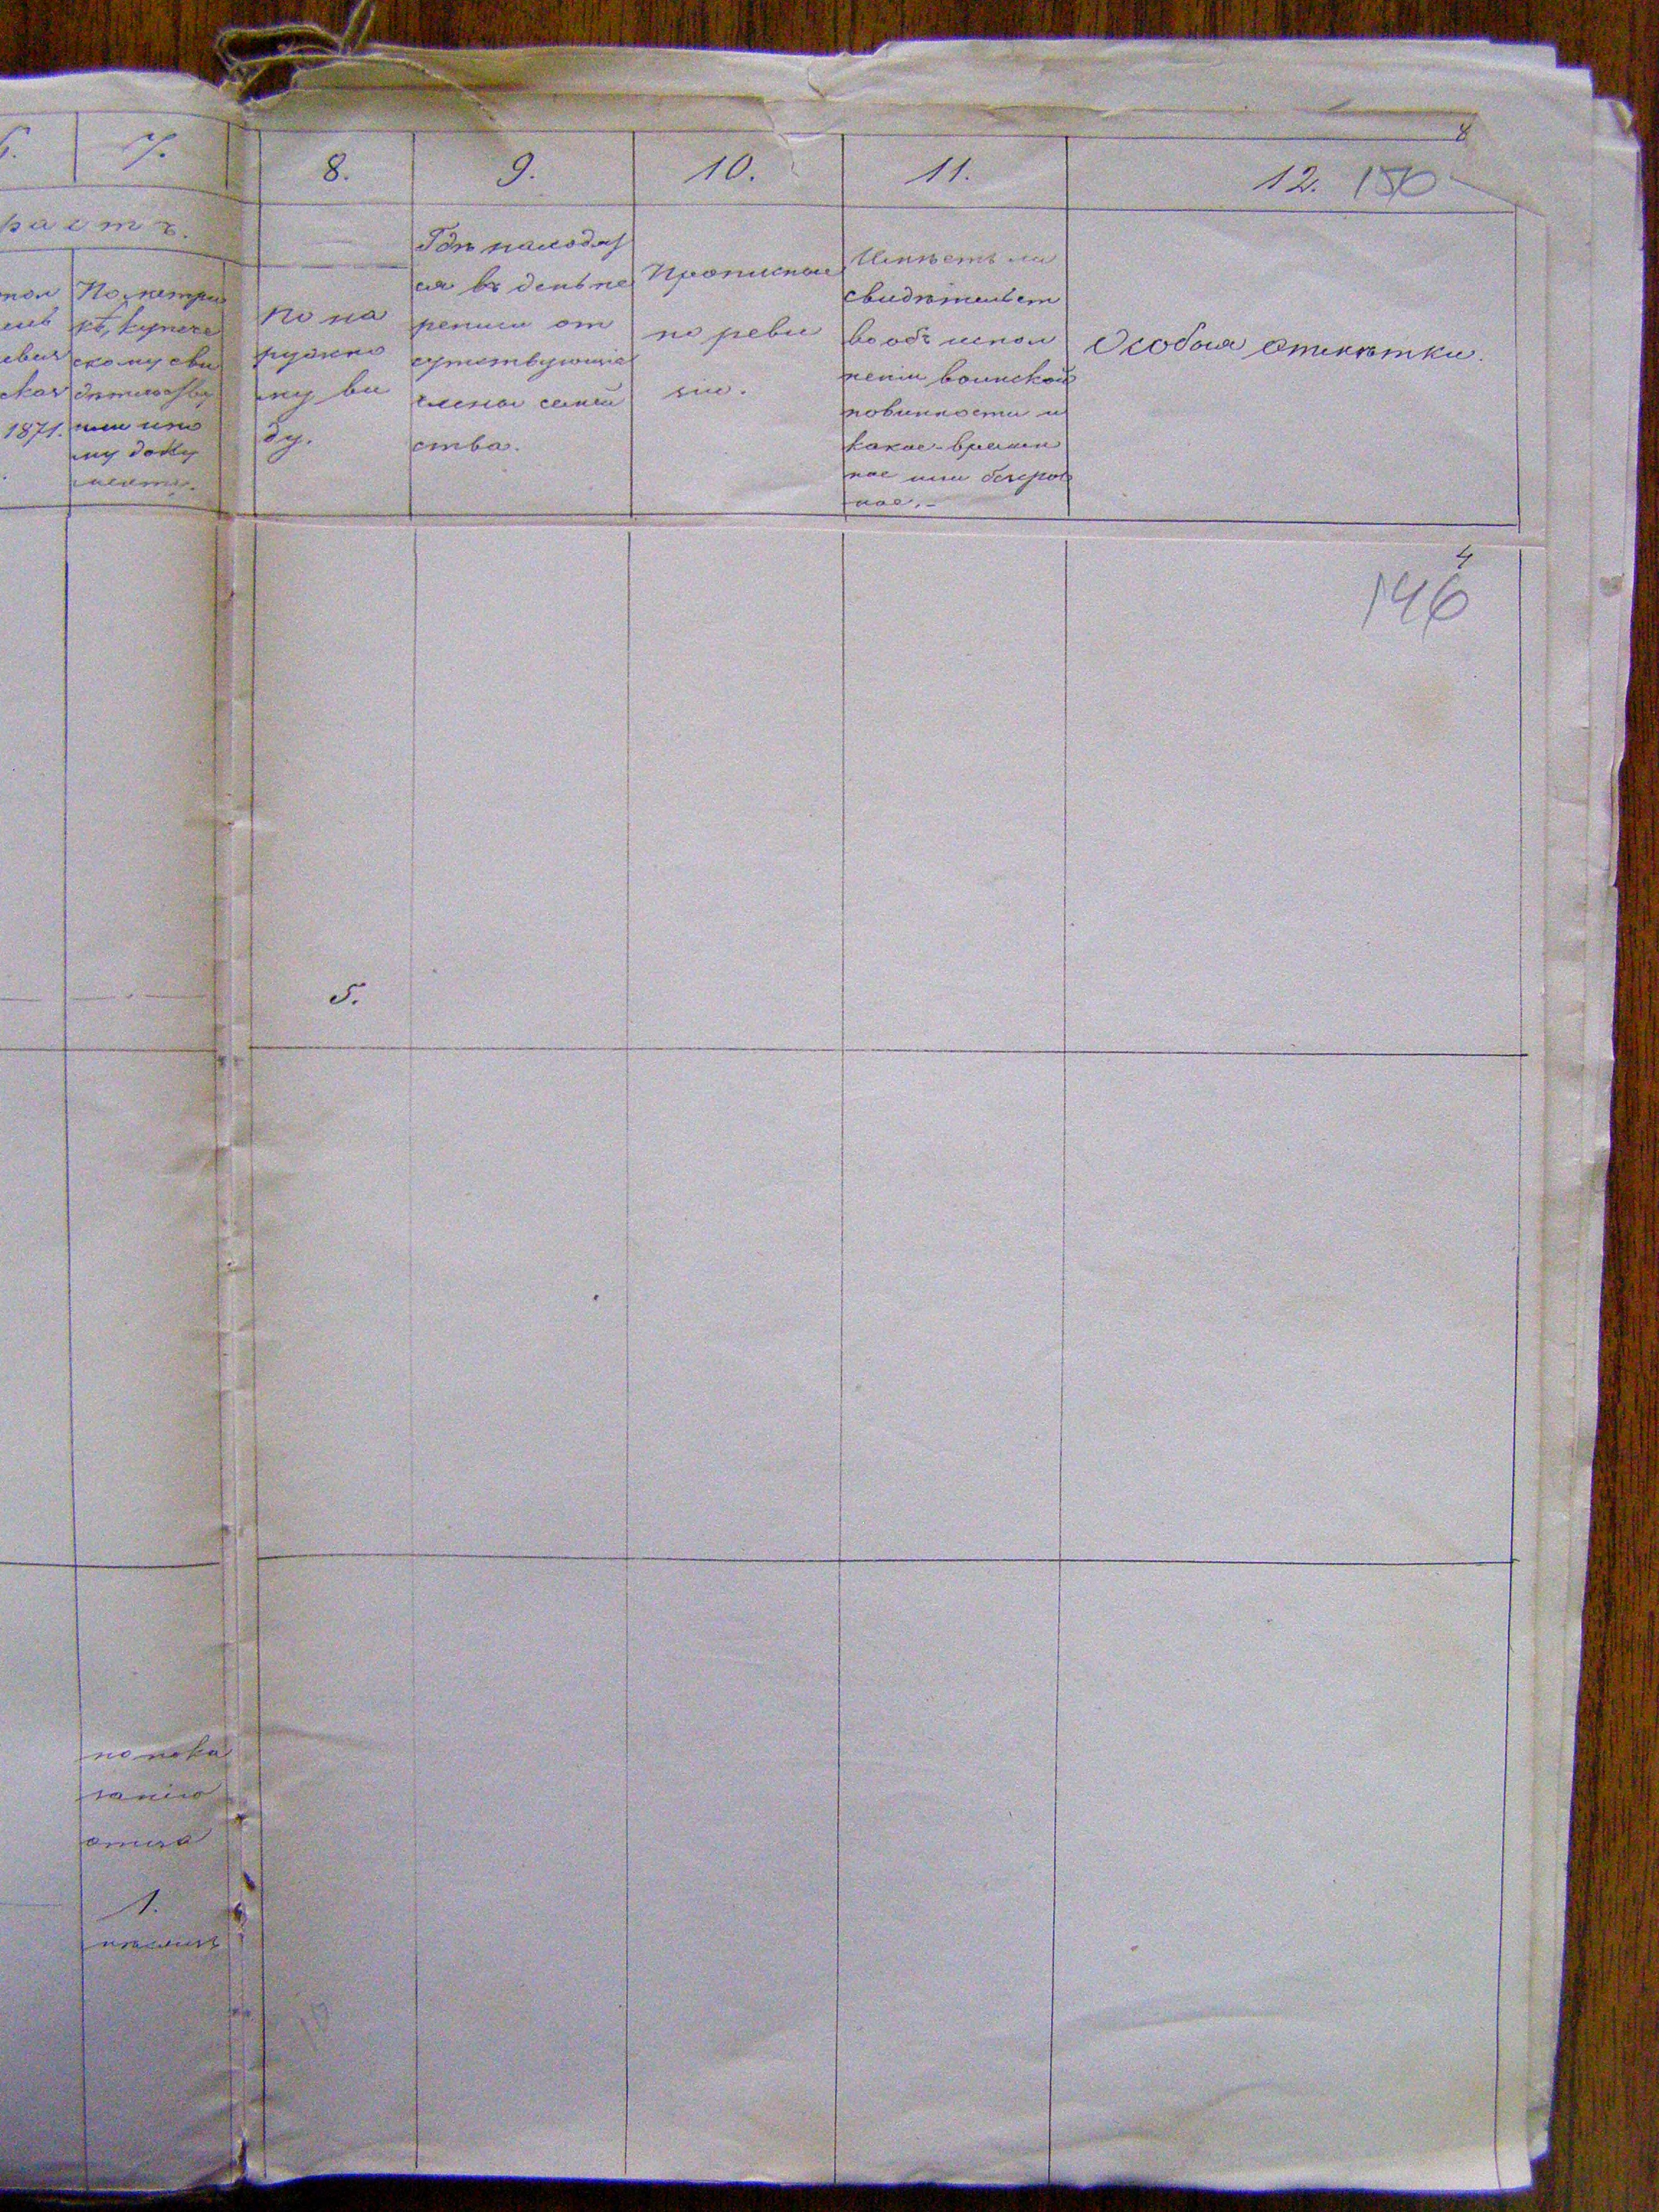 8
7. 8. 9. 10. 11. 12. 150
растъ.
По метри
кѣ, купече
скому сви
дѣтельству
или ино
му доку
менту.
1871.
По на
ружно
му ви
ду.
Гдѣ находят
ся въ день пе
реписи от
сутствующіе
члены семей
ства.
Прописные
по реви
зіи.
Имѣетъ ли
свидѣтельст
во объ испол
неніи воинской
повинности и
какое - времен
ное или безсроч
ное. -
Особыя отмѣтки.
4
146
5.
по пока
занію
отца
1.
мѣсяцъ